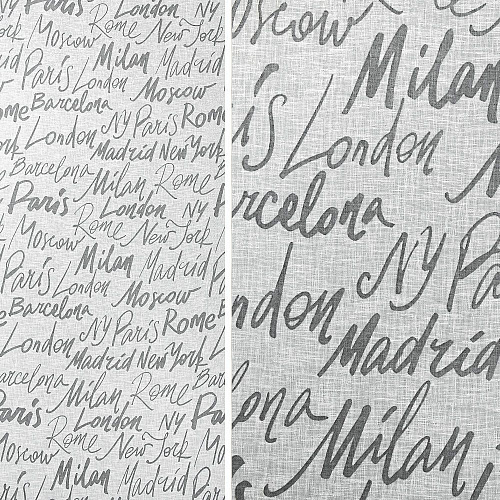 London NY
Rome New York
Moscow
Milan Madrid
Paris London
Moscow
Barcelona
NY Paris Rome
London
Madrid New York
Barcelona
Milan Rome
Paris London NY
Rome New York
Moscow
Milan Madrid
Paris London
Moscow
Barcelona
NY Paris Rome
London
Madrid New York
Barcelona
Milan Rome
Paris London NY
Rome New York
Moscow
Milan Madrid
Paris London
Moscow
Milan
London
Barcelona
NY
London
Madrid
Milan